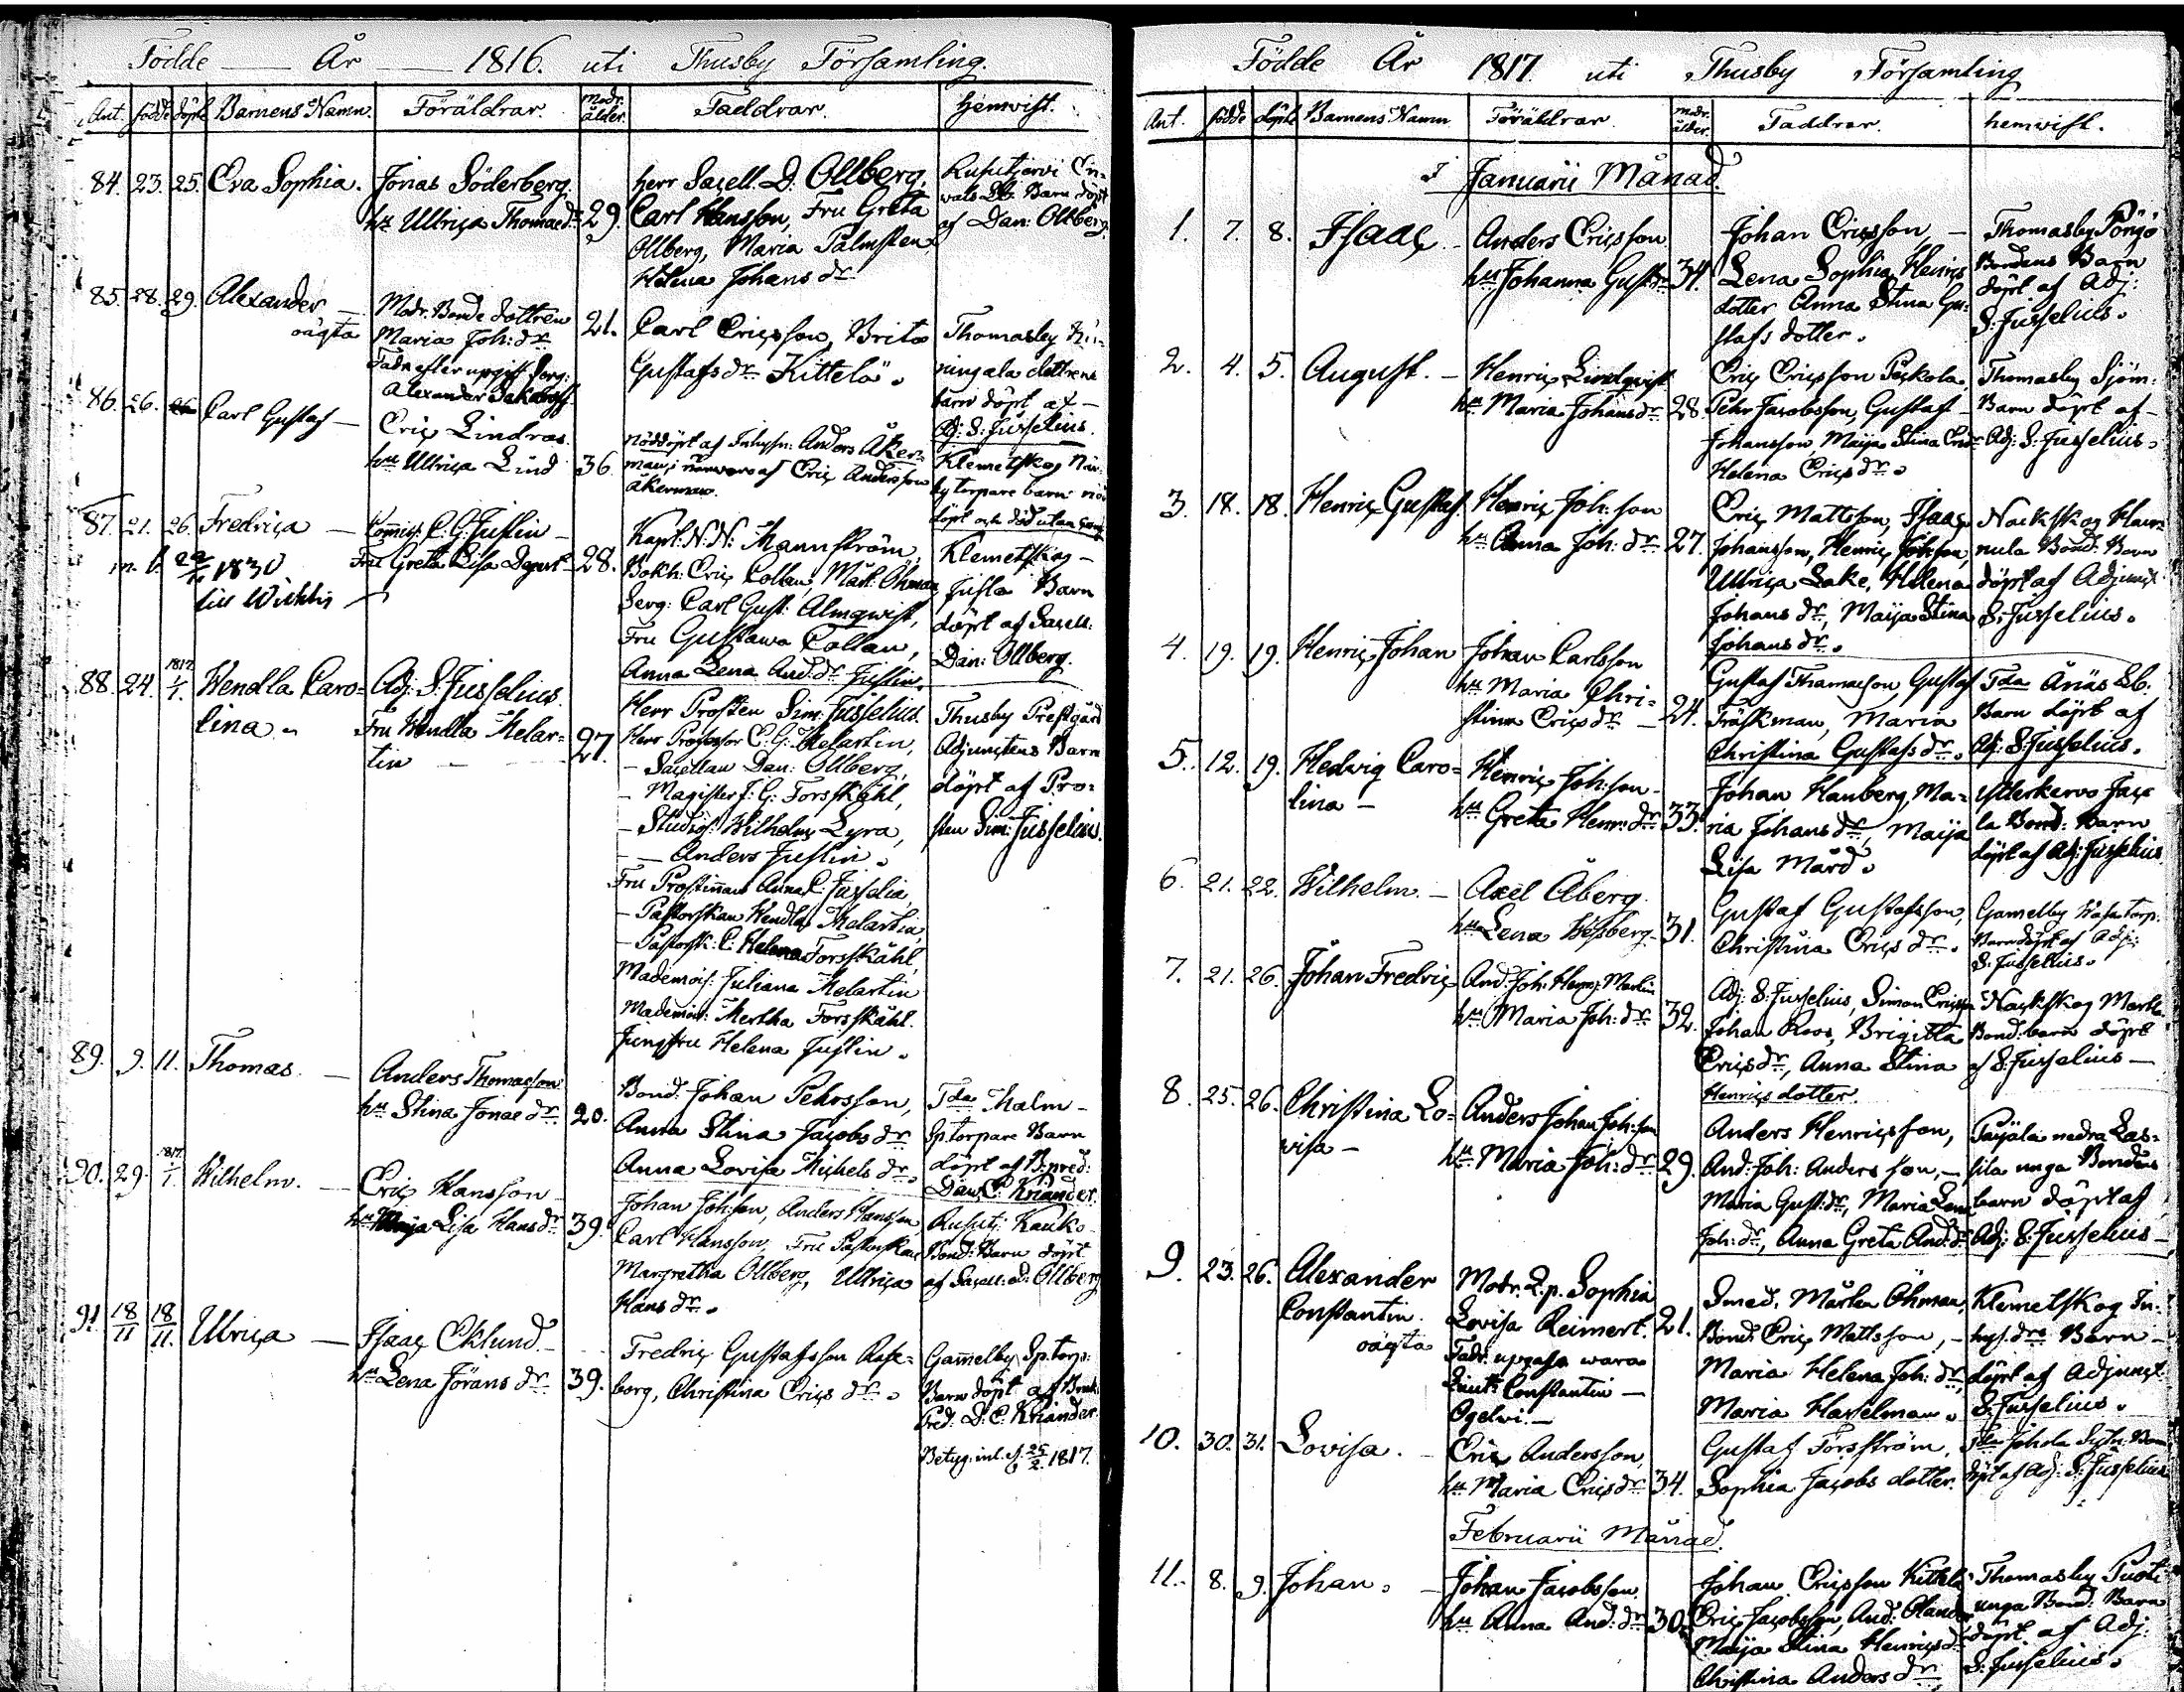 Födde År 1816. uti Thusby Församling.
Ant. födde döpte Barnens Namn. Föräldrar. Modr. ålder. Faddrar. hemvist.
84. 23. 25. Eva Sophia. Jonas Söderberg,
hu Ullrica Thomae dr 29.
herr Sacell. D. Ollberg,
Carl Hansson, Fru Greta
Ollberg, Maria Palmsten,
Helena Johans dr
Barn döpt
af Dan: Ollberg.
85. 28. 29. Alexander —
oägta
Modr. Bonde dottren
Maria Joh: dr 21.
Fadr. efter upgift Serg:
Alexander
Carl Ericsson, Brita
Gustafs dr Kittelä.
Thomasby
dottrens
barn döpt af —
Adj: S: Jusselius.
86. 26. Carl Gustaf —
Eric Lindroos
hu Ullrica Lind 36.
nöddöpt af Inhysn: Anders Åker-
man, i närwaro af Eric Andersson
Åkerman.
Klemetskog
torpare barn nöd
döpt och död utan
87. 21. 26. Fredrica —
1830
till Wichtis
Commiss. C. G. Juslin —
Fru Greta Lisa 28.
Kapt. N. N: Mannström,
Bokh: Eric Collan, Mårt. Öhman,
Serg: Carl Gust: Almqwist,
Fru Gustawa Collan,
Anna Lena And: dr Juslin.
Klemetskog —
Jusla Barn
döpt af Sacell:
Dan: Ollberg.
88. 24. 1817 1/1. Wendla Caro-
lina.
Adj: S. Jusselius.
Fru Wendla Melar-
tin — 27.
Herr Prosten Sim: Jusselius.
Herr Professor E: G: Melartin,
— Sacellan Dan: Ollberg,
— Magister J: G: Forsskåhl,
— Studios: Wilhelm Lyra,
— — Anders Juslin.
Fru Prostinnan Anna C: Jusselia,
— Pastorskan Wendla Melartin,
— Pastorsk: C: Helena Forsskåhl,
Mademois: Juliana Melartin
Mademois: Mertha Forsskåhl.
Jungfru Helena Juslin.
Thusby Prestgård
Adjunctens Barn
döpt af Pro-
sten Sim: Jusselius.
89. 9. 11. Thomas. —
Anders Thomasson
hu Stina Jonae dr 20.
Bond. Johan Pehrsson,
Anna Stina Jacobs dr
Anna Lovisa Michels dr.
Tda Malm —
Sp. torpare Barn
döpt af B: pred:
Dan. C. Kriander.
90. 29. 1817 1/1. Wilhelm. —
Eric Hansson
hu Maija Lisa Hans dr 39.
Johan Joh:son, Anders Hansson,
Carl Hansson, Fru Pastorskan
Margretha Ollberg, Ullrica
Hans dr.
Rusutj: Kauko
Bond: Barn döpt
af Sacell: D: Ollberg
91. 18/11 18/11. Ullrica —
Isaac Eklund. —
hu Lena Jörans dr 39.
Fredric Gustafsson Rase-
borg, Christina Erics dr.
Gammelby Sp. torp:
Barn döpt af Bruk:
Pred: D. C. Kriander.
Betyg. inl. d. 25/2. 1817.
Födde År 1817. uti Thusby Församling
Ant. födde döpte Barnens Namn Föräldrar. Modr. ålder. Faddrar. hemvist.
i Januarii Månad.
1. 7. 8. Isaac. —
Anders Ericsson
hu Johanna Gust: dr 34.
Johan Ericsson, —
Lena Sophia Henrics
dotter Anna Stina Gu-
stafs dotter.
Thomasby Pöngö
Bondens Barn
döpt af Adj:
S: Jusselius.
2. 4. 5. August. —
Henric Lindqvist
hu Maria Johans dr 28.
Eric Ericsson Peckola,
Pehr Jacobsson, Gustaf —
Johansson, Maija Stina Erics dr
Helena Erics dr.
Thomasby Sjöm:
Barn döpt af —
Adj: S: Jusselius.
3. 18. 18. Henric Gustaf.
Henric Joh:son
hu Anna Joh: dr 27.
Eric Mattsson, Isaac
Johansson, Henric Johsson,
Ullrica Lake, Helena
Johans dr, Maija Stina
Johans dr.
Nackskog
Bond: Barn
döpt af Adjunct
S: Jusselius.
4. 19. 19. Henric Johan
Johan Carlsson
hu Maria Chri-
stina Erics dr — 24.
Gustaf Thomasson, Gustaf
Träskman, Maria
Christina Gustafs dr.
Tda Anäs Lb.
Barn döpt af
Adj: S: Jusselius.
5. 12. 19. Hedvig Caro-
lina —
Henric Joh:son —
hu Greta Henr: dr 33.
Johan Hanberg, Ma-
ria Johans dr, Maija
Lisa Mård.
Ytterkervo Jäcä
la Bond: Barn
döpt af Adj: Jusselius
6. 21. 22. Wilhelm. —
Axel Åberg.
hu Lena Wessberg. 31.
Gustaf Gustafsson,
Christina Erics dr.
Gamelby torp.
Barn döpt af Adj:
S. Jusselius.
7. 21. 26. Johan Fredric
And. Joh: Henr: Martin
hu Maria Joh: dr 32.
Adj: S: Jusselius, Simon Ericsson
Johan Roos, Brigitta
Erics dr, Anna Stina
Henrics dotter.
Nackskog Martt
Bond: barn döpt
af S: Jusselius —
8. 25. 26. Christina Lo-
visa —
Anders Johan Joh:son
hu Maria Joh: dr 29.
Anders Henricsson,
And: Joh: Andersson, —
Maria Gust: dr, Maria Lena
Joh: dr, Anna Greta And: dr
Paijala nedra Las-
sila unga Bondens
barn döpt af
Adj: S: Jusselius —
9. 23. 26. Alexander
Constantin.
oägta
Modr. Q. p. Sophia
Lovisa Reimert. 21.
Fadr. upgafs wara
Lieut: Constantin —
Ogelwi. —
Smed. Mårten Öhman,
Bond: Eric Mattsson, —
Maria Helena Joh: dr,
Maria Hasselman.
Klemetskog In-
hys. drs Barn —
döpt af Adjunct.
S: Jusselius.
10. 30. 31. Lovisa. —
Eric Andersson,
hu Maria Erics dr 34.
Gustaf Forsström,
Sophia Jacobs dotter.
döpt af Adj: S: Jusselius
Februarii Månad.
11. 8. 9. Johan. —
Johan Jacobsson
hu Anna And: dr 30.
Johan Ericsson Kittelä
Eric Jacobsson, And: Olander
Maija Stina Henrics dr
Christina Anders dr,
Thomasby Puoti
unga Bond: Barn
döpt af Adj:
S: Jusselius.